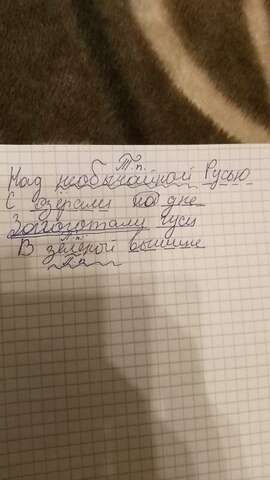 Т. п.
Над необычайной Русью
С озёрами на дне
Загоготали гуси
В зелёной вышине
П. п.